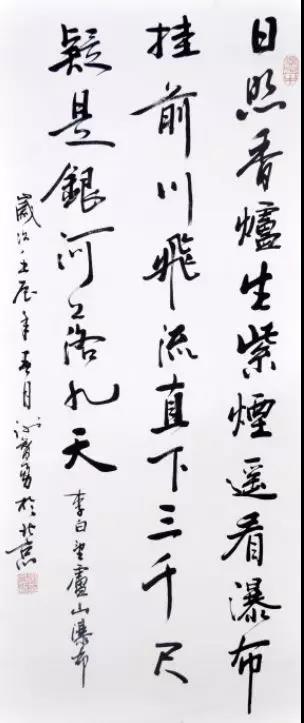 日照香爐生紫煙遥看瀑布
挂前川飛流直下三千尺
疑是銀河落九天
李白望廬山瀑布
歲次壬辰年月於北京